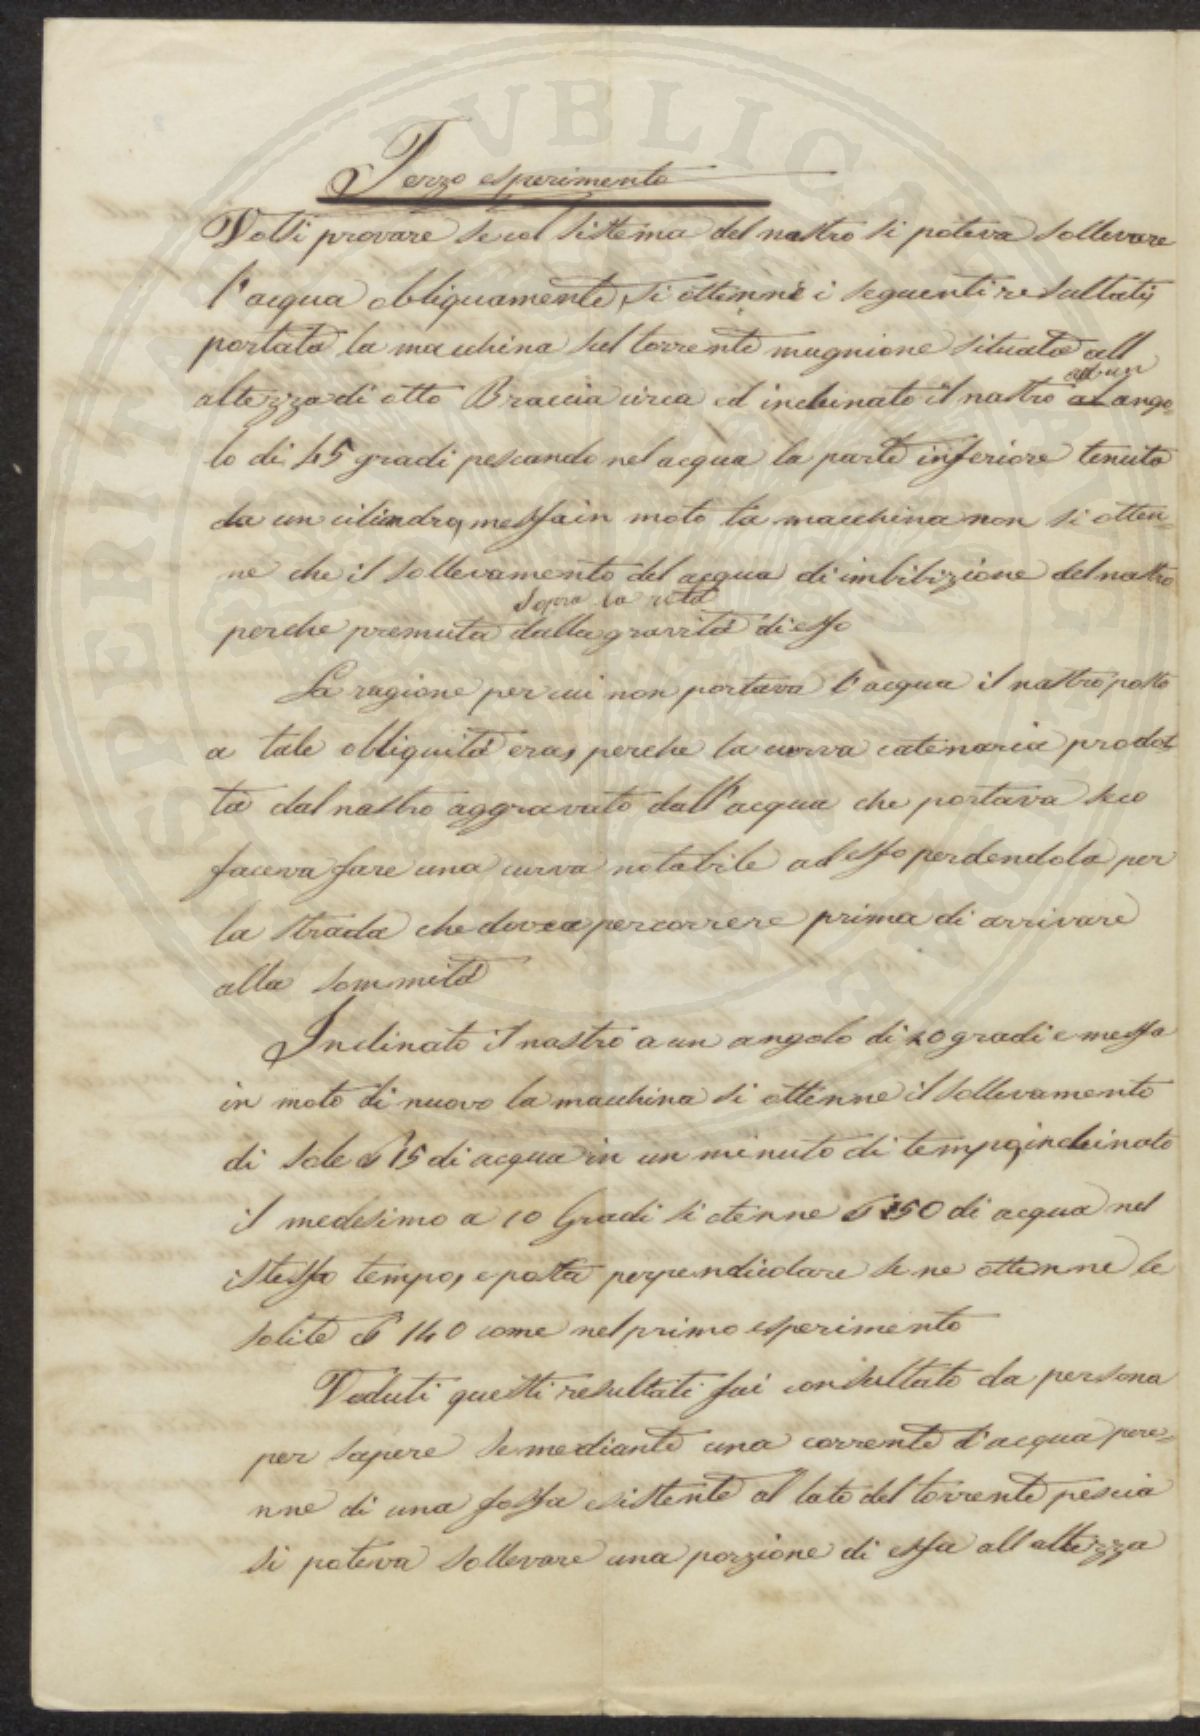 Terzo esperimento
Volli provare se col sistema del nastro si poteva sollevare
l'acqua obliquamente, si ottenne i seguenti resultati,
portata la macchina sul torrente mugnione situata all
altezza di otto Braccia circa ed inclinato il nastro al ad un ango-
lo di 45 gradi pescando nel acqua la parte inferiore tenuta
da un cilindro, messa in moto la macchina non si otten-
ne che il sollevamento del acqua di imbibizione del nastro
sopra la rota
perche premuta dalla gravità di esso
La ragione per cui non portava l'acqua il nastro posto
a tale obliquità era, perche la curva catenaria prodot-
ta dal nastro aggravato dall'acqua che portava seco
faceva fare una curva notabile ad esso perdendola per
la strada che dovea percorrere prima di arrivare
alla sommità
Inclinato il nastro a un angolo di 20 gradi e messa
in moto di nuovo la macchina si ottenne il sollevamento
di sole 15 di acqua in un minuto di tempo, inclinato
il medesimo a 10 Gradi si otenne 50 di acqua nel
istesso tempo, e posta perpendicolare se ne ottenne le
solite 140 come nel primo esperimento
Veduti questi resultati fui consultato da persona
per sapere se mediante una corrente d'acqua pere-
nne di una fossa esistente al lato del torrente pescia
si poteva sollevare una porzione di essa all altezza